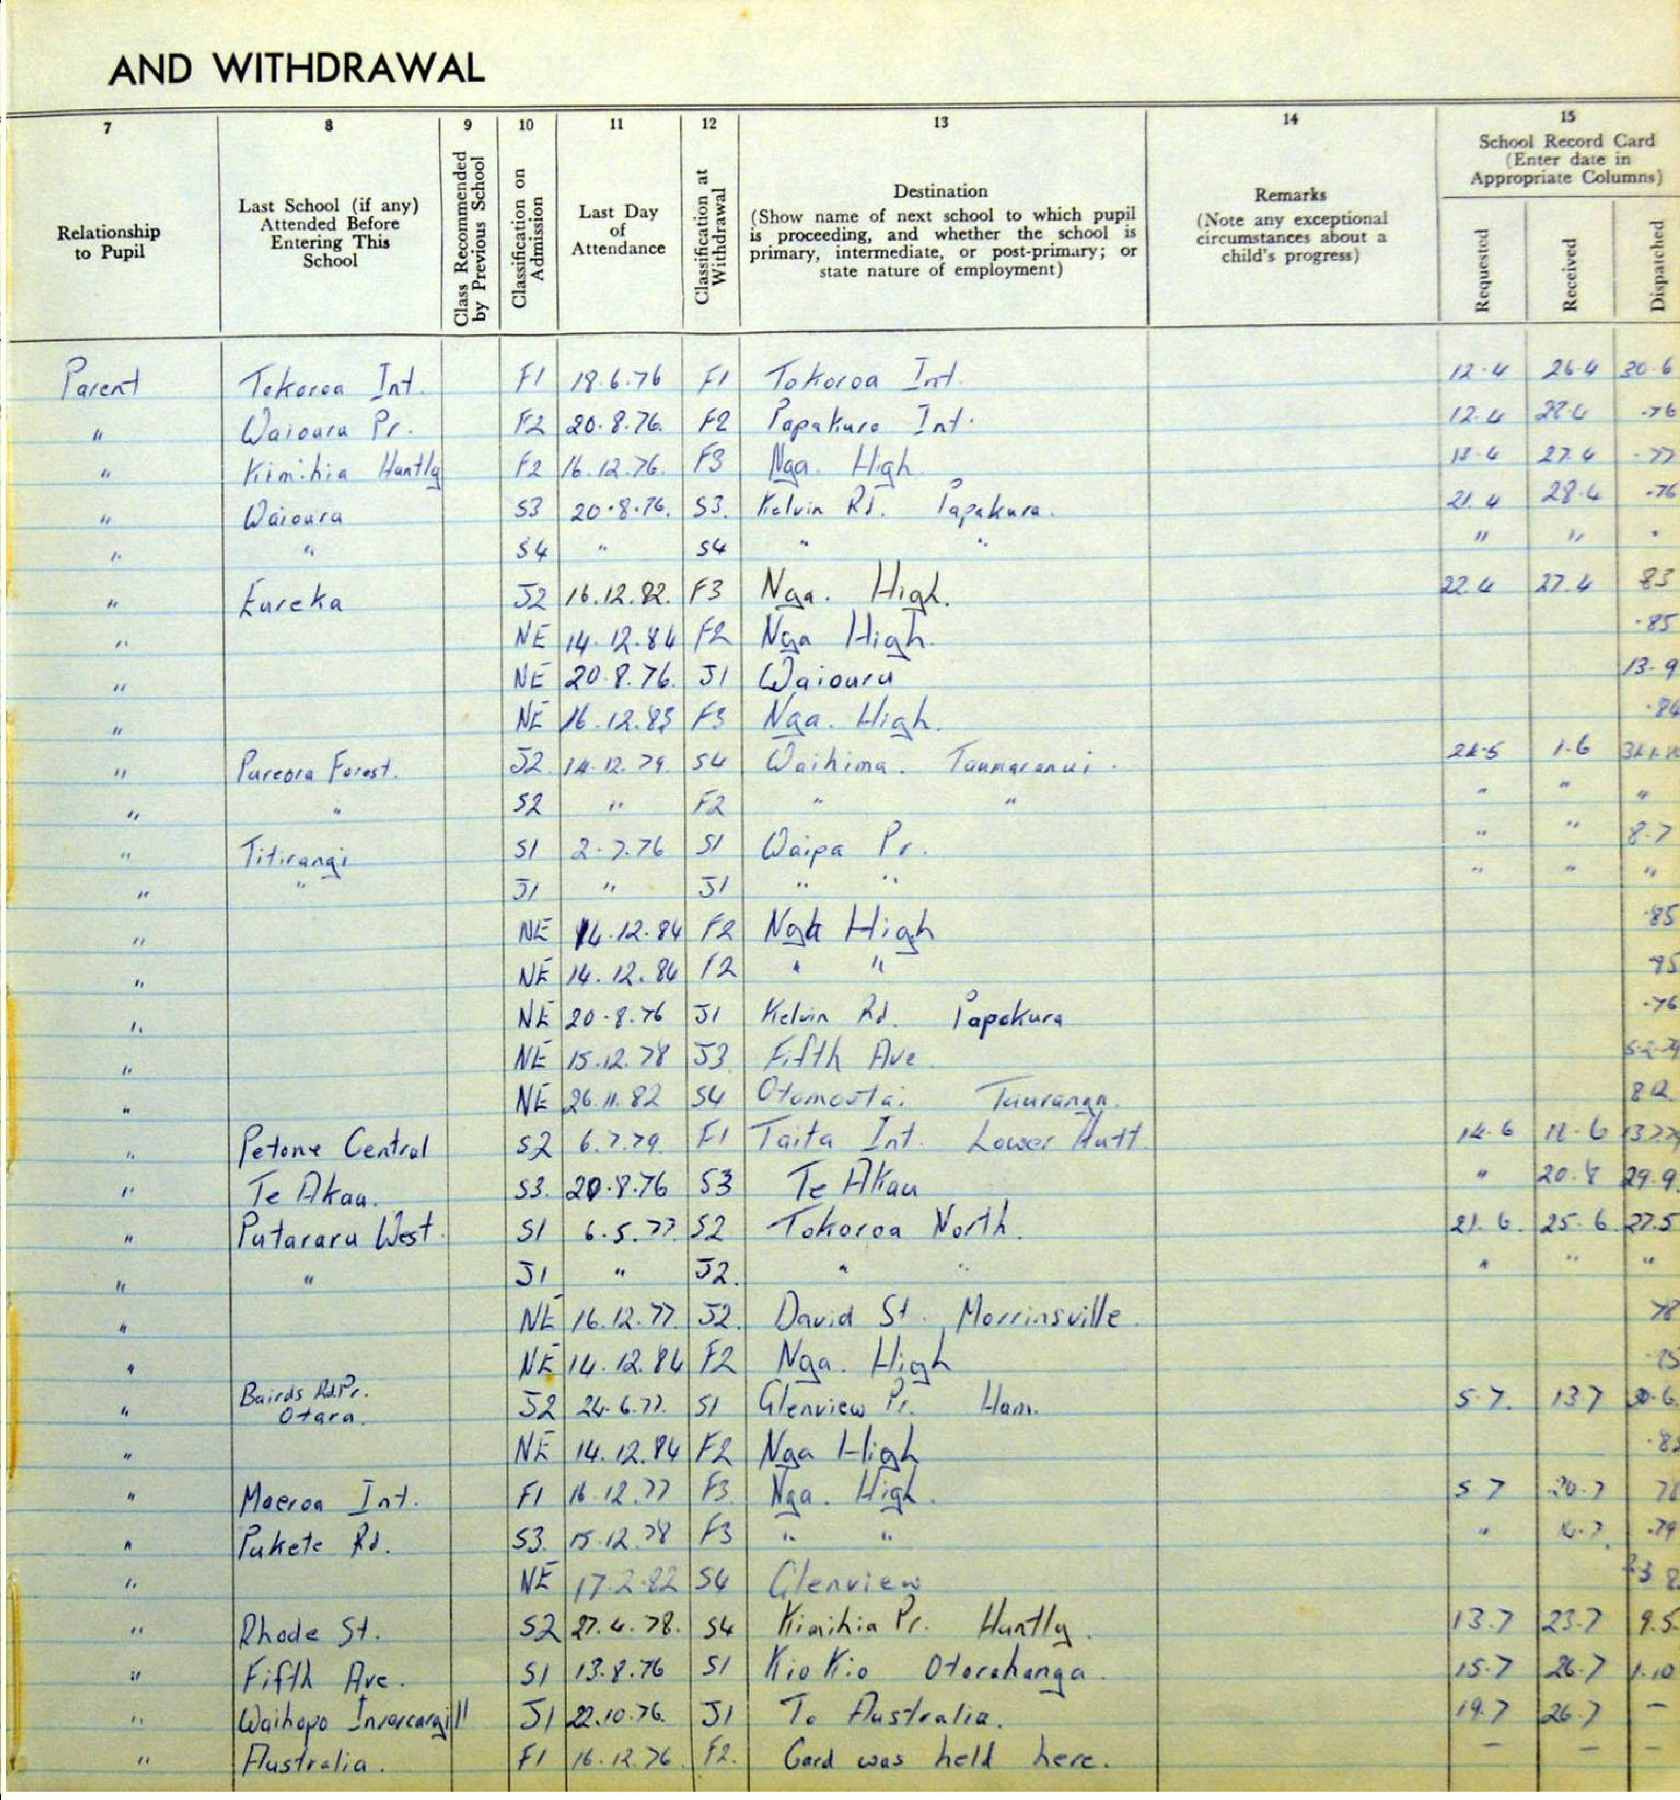 AND WITHDRAWAL
7 8 9 10 11 12 13 14 15
Relationship to Pupil
Last School (if any) Attended Before Entering This School
Class Recommended by Previous School
Classification on Admission
Last Day of Attendance
Classification at Withdrawal
Destination
(Show name of next school to which pupil is proceeding, and whether the school is primary, intermediate, or post-primary; or state nature of employment)
Remarks
(Note any exceptional circumstances about a child's progress)
School Record Card
(Enter date in Appropriate Columns)
Requested Received Dispatched
Parent Tokoroa Int. F1 18.6.76 F1 Tokoroa Int. 12.4 26.4 30.6
" Waiouru Pr. F2 20.8.76. F2 Papakura Int. 12.4 28.4 -76
" Kimihia Huntly F2 16.12.76. F3 Nga. High 13.4 27.4 -77
" Waioura S3 20.8.76. S3. Kelvin Rd. Papakura. 21.4 28.4 -76
" " S4 " S4 " " " " "
" Eureka J2 16.12.82. F3 Nga. High. 22.4 27.4 83
" NE 14.12.84 F2 Nga High. -85
" NE 20.8.76. J1 Waiouru 13.9
" NE 16.12.83 F3 Nga. High. -84
" Pureora Forest. J2. 14.12.79. S4 Waihima. Taumaranui. 24.5 1.6
" " S2 " F2 " " " " "
" Titirangi S1 2.7.76 S1 Waipa Pr. " " 8.7
" " J1 " J1 " " " " "
" NE 14.12.84 F2 Nga High -85
" NE 14.12.84 F2 " "
" NE 20.8.76 J1 Kelvin Rd. Papakura -76
" NE 15.12.78 J3 Fifth Ave. 5-2-79
" NE 26.11.82 S4 Otumoetai Tauranga. 82
" Petone Central S2 6.7.79. F1 Taita Int. Lower Hutt 14.6 11.6 13.7.79
" Te Akau. S3. 20.8.76 S3 Te Akau " 20.8 29.9
" Putararu West. S1 6.5.77. S2 Tokoroa North. 21.6. 25.6 27.5
" " J1 " J2. " " " " "
" NE 16.12.77. J2. David St. Morrinsville. 78
" NE 14.12.84 F2 Nga. High
" Bairds Rd. Pr.
Otara. J2 24.6.77. S1 Glenview Pr. Ham. 5.7. 13.7 30.6.
" NE 14.12.84 F2 Nga High
" Maeroa Int. F1 16.12.77 F3 Nga. High. 5.7 20.7 78
" Pukete Rd. S3. 15.12.78 F3 " " " -79
" NE 17.2.82 S4 Glenview
" Rhode St. S2 27.4.78. S4 Kimihia Pr. Huntly. 13.7 23.7 9.5.
" Fifth Ave. S1 13.8.76 S1 Kio Kio Otorohanga. 15.7 26.7 1.10
" Waihopo Invercargill J1 22.10.76. J1 To Australia. 19.7 26.7 –
" Australia. F1 16.12.76. F2. Card was held here. – – –